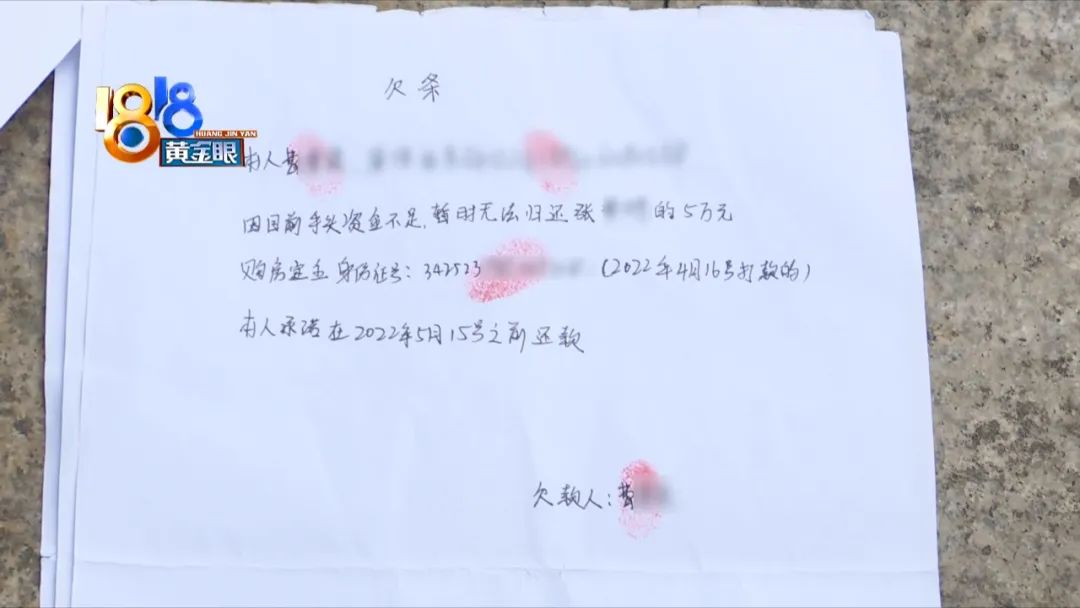 1818
HUANG JIN YAN
黄金眼
欠条
本人
因目前手头资金不足,暂时无法归还张 的5万元
购房定金 身份证号:342523 (2022年4月16号打款的)
本人承诺在2022年5月15号之前还款
欠款人: